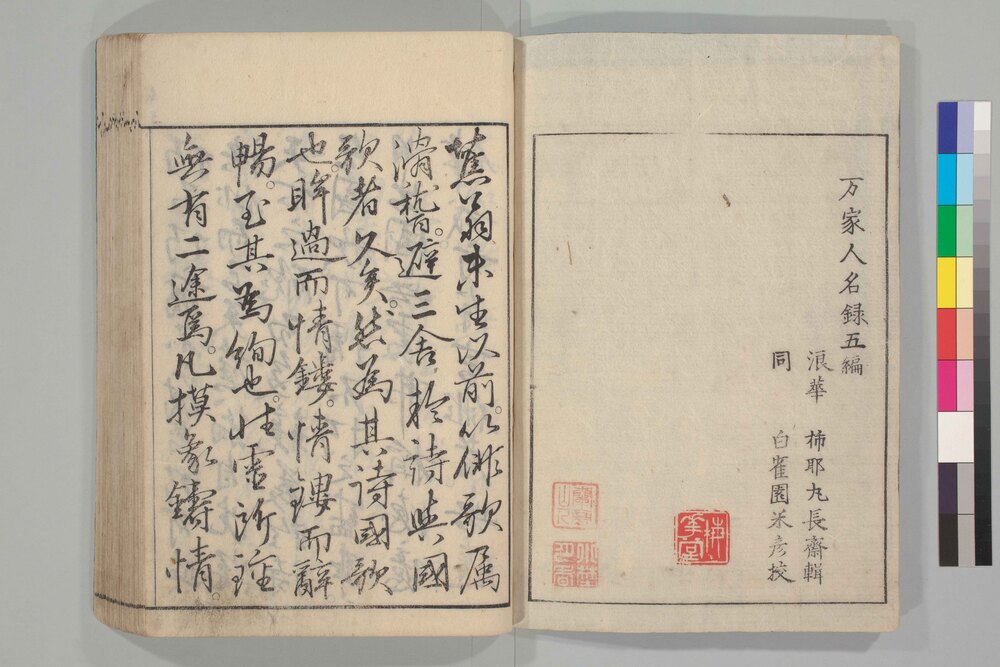 万家人名録五編
浪華 柿耶丸長齋輯
同 白雀園米彦校
蕉翁未生以前。以俳歌属
滑稽。避三舎於詩與國
歌者久矣。然為其詩國歌
也。眸過而情鏤。情鏤而辭
暢。至其為絢也。性霊所鍾
無有二途焉。凡摸象鑄情。